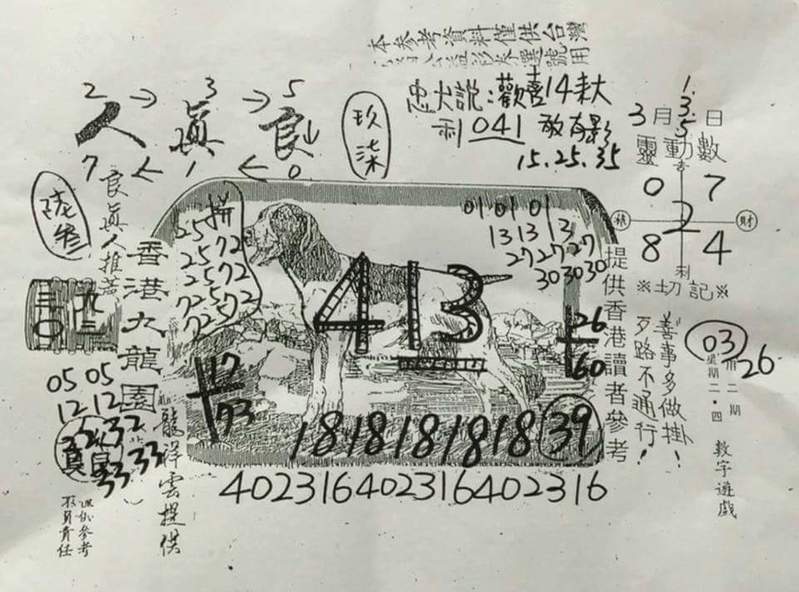 本參考資料僅供台灣
2 → 3 → 5
人 眞 良
7 ← 1 ← 0
玖柒
說:歡喜14未大
041 敢有影
15.25.35
1.
3.
5
3月 日
靈動數
0 7
2
8 4
財
※切記※
良眞人推薦
叁
香港九龍園
三〇
九三
拼
25
25 72
25 72
25 72
72 52
72
01 01 01
13 13 13
27 27 27
30 30 30
413
26
60
17
73
提供香港讀者參考
善事多做掛!
歹路不通行!
03
26
二期
星期二.四
數字遊戲
05 05
12 12
32 32
33 33
龍祥雲提供
181818181839
402316402316402316
參考
不負責任